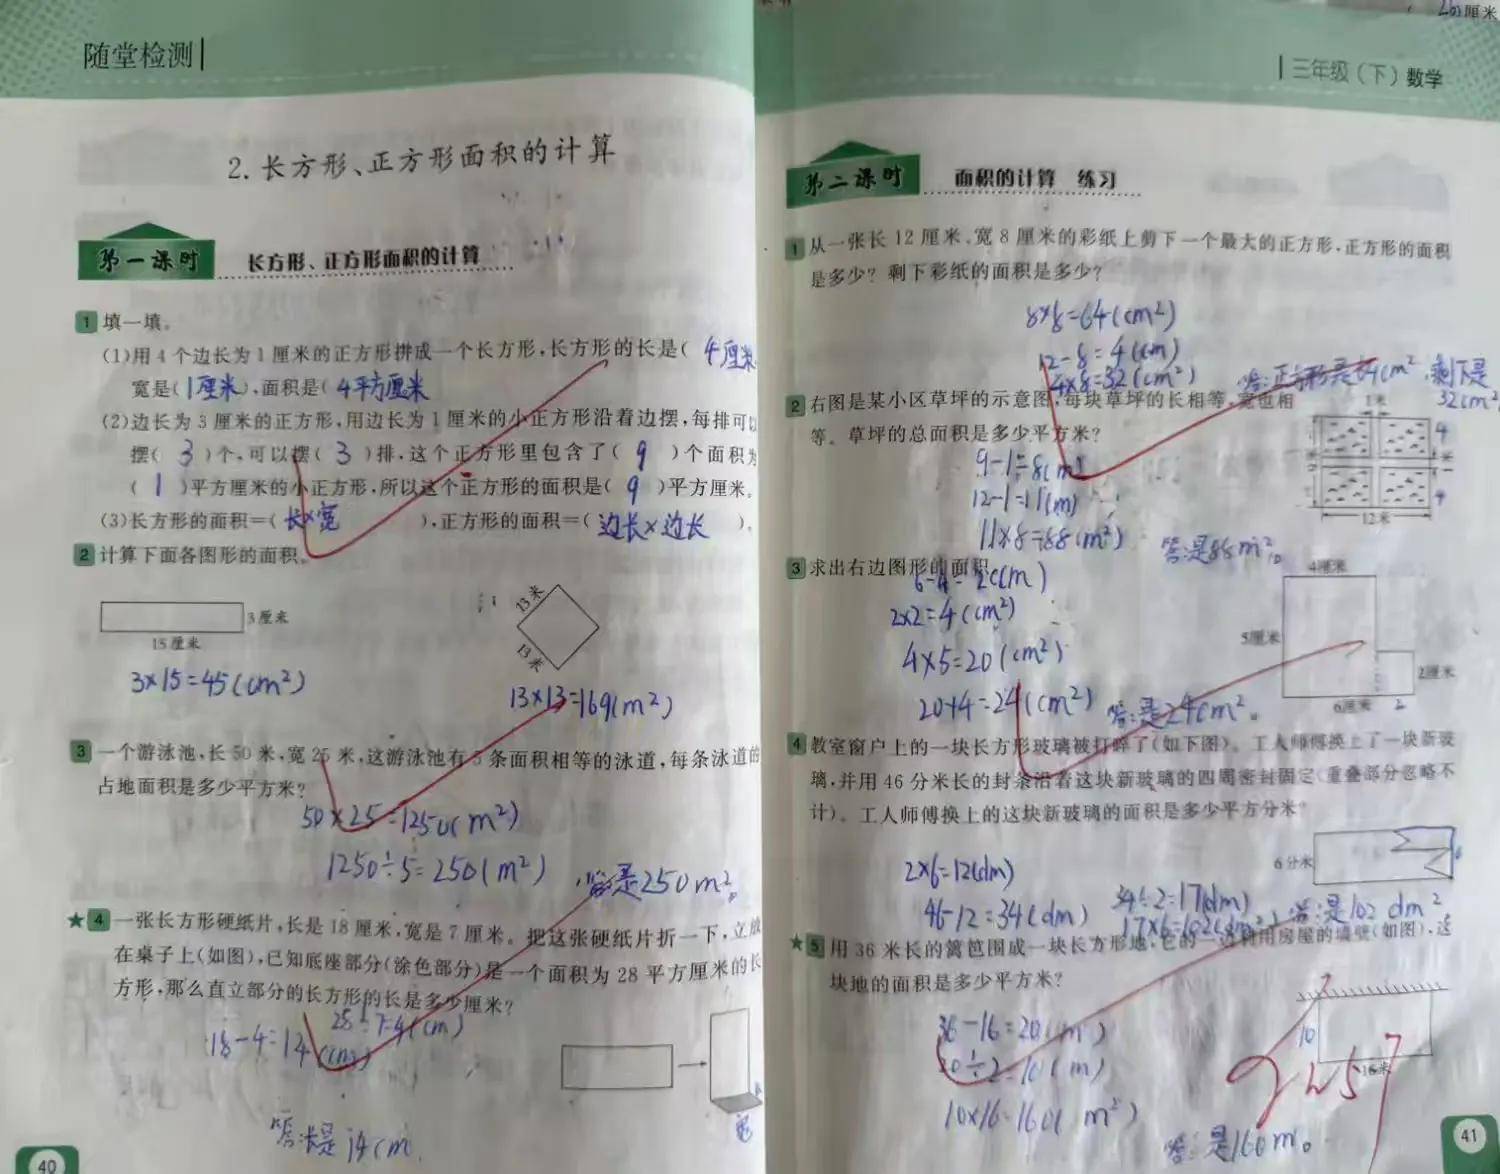 随堂检测
2.长方形、正方形面积的计算
第一课时 长方形、正方形面积的计算
1 填一填。
(1)用4个边长为1厘米的正方形拼成一个长方形,长方形的长是( 4厘米
宽是(1厘米),面积是(4平方厘米
(2)边长为3厘米的正方形,用边长为1厘米的小正方形沿着边摆,每排可以
摆( 3 )个,可以摆( 3 )排,这个正方形里包含了( 9 )个面积为
( 1 )平方厘米的小正方形,所以这个正方形的面积是( 9 )平方厘米。
(3)长方形的面积=( 长×宽 ),正方形的面积=( 边长×边长 )。
2 计算下面各图形的面积。
3厘米
15厘米
13米
13米
3×15=45(cm²)
13×13=169(m²)
3 一个游泳池,长50米,宽25米,这游泳池有5条面积相等的泳道,每条泳道的
占地面积是多少平方米?
50×25=1250(m²)
1250÷5=250(m²)
答:是250m²。
★4 一张长方形硬纸片,长是18厘米,宽是7厘米。把这张硬纸片折一下,立放
在桌子上(如图),已知底座部分(涂色部分)是一个面积为28平方厘米的长
方形,那么直立部分的长方形的长是多少厘米?
28÷7=4(cm)
18-4=14(cm)
答:长是14cm
40
厘米
三年级(下)数学
第二课时 面积的计算 练习
1 从一张长12厘米、宽8厘米的彩纸上剪下一个最大的正方形,正方形的面积
是多少?剩下彩纸的面积是多少?
8×8=64(cm²)
12-8=4(cm)
4×8=32(cm²)
答:正方形是64cm²,剩下是
32cm²
2 右图是某小区草坪的示意图,每块草坪的长相等,宽也相
等。草坪的总面积是多少平方米?
1米
4
4
12米
9-1=8(m)
12-1=11(m)
11×8=88(m²)
答:是88m²。
3 求出右边图形的面积。
4厘米
5厘米
2厘米
6厘米
2
6-4=2(cm)
2×2=4(cm²)
4×5=20(cm²)
20+4=24(cm²)
答:是24cm²。
4 教室窗户上的一块长方形玻璃被打碎了(如下图)。工人师傅换上了一块新玻
璃,并用46分米长的封条沿着这块新玻璃的四周密封固定(重叠部分忽略不
计)。工人师傅换上的这块新玻璃的面积是多少平方分米?
6分米
2×6=12(dm)
46-12=34(dm)
34÷2=17(dm)
17×6=102(dm²)
答:是102dm²
★5 用36米长的篱笆围成一块长方形地,它的一边利用房屋的墙壁(如图),这
块地的面积是多少平方米?
36-16=20(m)
20÷2=10(m)
10×16=160(m²)
10
16米
答:是160m²。
41